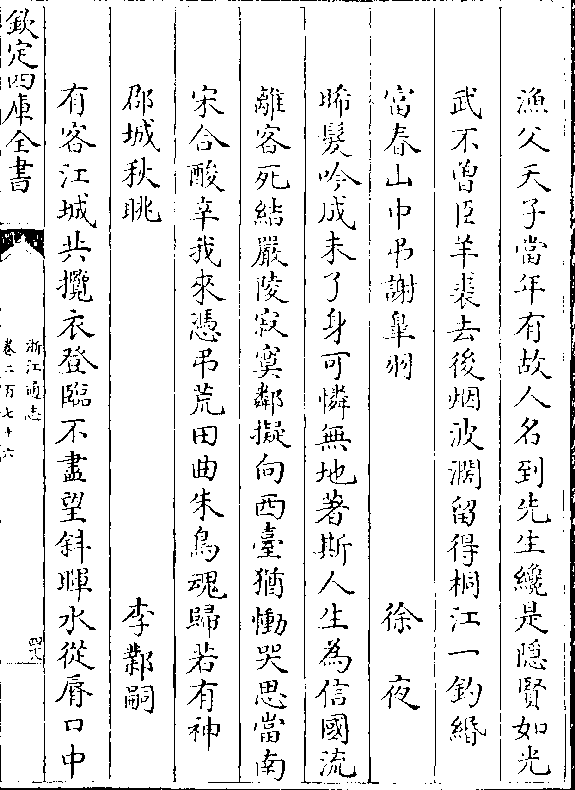 漁父天子當年有故人名到先生纔是隠賢如光
武不曽臣羊裘去後烟波濶留得桐江一釣緡
富春山中弔謝臯羽 徐夜
晞髮吟成未了身可憐無地著斯人生為信國流
離客死結嚴陵寂寞鄰擬向西臺猶慟哭思當南
宋合酸辛我來憑弔荒田曲朱鳥魂歸若有神
郡城秋眺 李鄴嗣
有客江城共攬衣登臨不盡望斜暉水從脣口中
欽定四庫全書
浙江通志
卷二百七十六